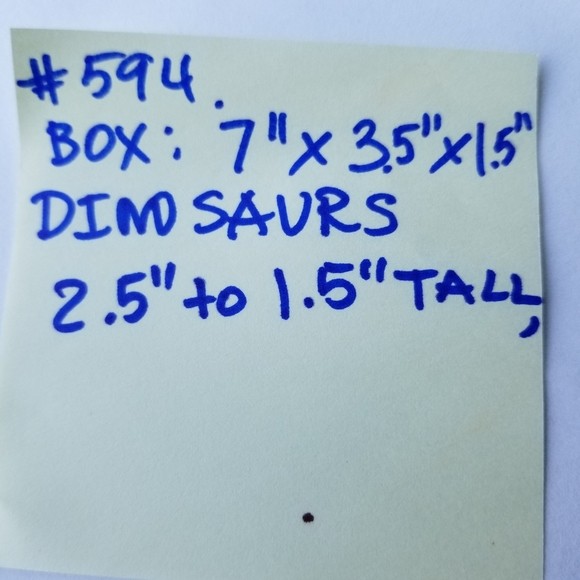 #594.
BOX: 7" x 3.5" x 1.5"
DINOSAURS
2.5" to 1.5" TALL,